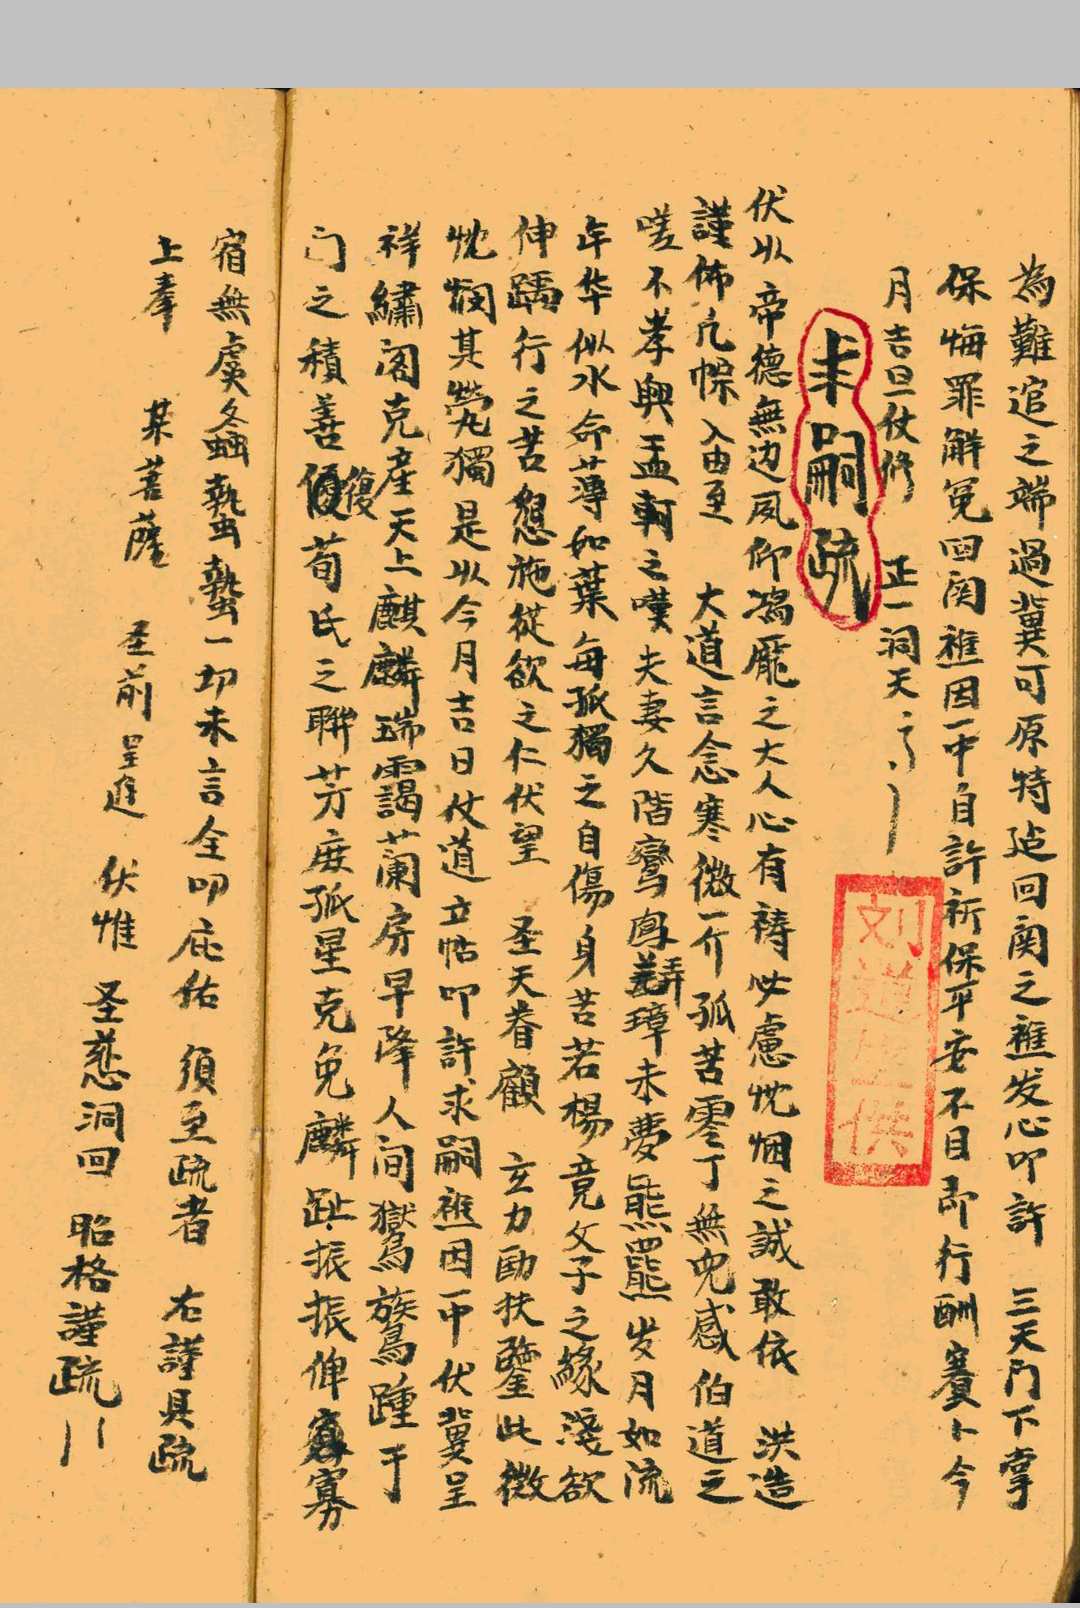 為難追之端過冀可原特迠回関之醮发心叩許　三天門下掌
保悔罪觧冤回関醮因一中自許祈保平安不日即行酬賽卜今
月吉旦仗修　正一洞天
求嗣疏
伏以帝德無边夙仰鴻厖之大人心有祷必慮忱悃之誠敢依　洪造
謹佈凡幝入由至　大道言念寒微一介孤苦零丁無兒感伯道之
嗟不孝興孟軻之嘆夫妻久階鸞鳳弄璋未夢熊羆岁月如流
年华似水命薄如葉每孤獨之自傷身苦若楊竟父子之緣淺欲
伸踽行之苦懇施從欲之仁伏望　圣天眷顧　玄力勖扶鑒此微
忱憫其煢獨是以今月吉日仗道立帖叩許求嗣醮因一中伏冀呈
祥繡阁克產天上麒麟瑞靄蘭房早降人间鸑鷟踵于
门之積善復荀氏之聯芳庻孤星克免麟趾振振俾寡
宿無虞螽蟄蟄一切未言全叩庇佑　須至疏者　右謹具疏
上奉　某菩薩　圣前呈進　伏惟　圣慈洞回　昭格謹疏
刘道生供